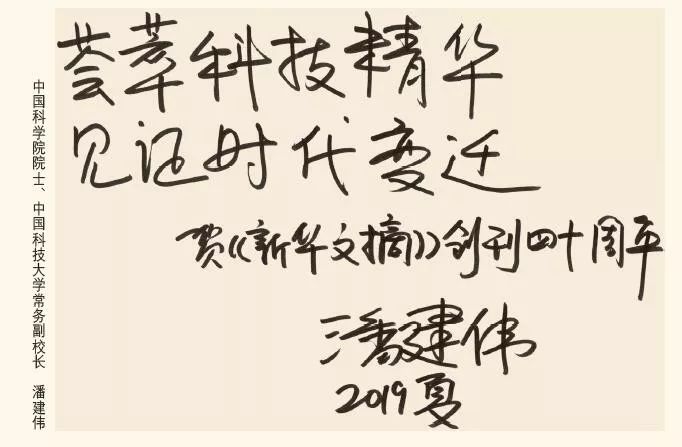 荟萃科技精华
见证时代变迁
贺《新华文摘》创刊四十周年
潘建伟
2019夏
中国科学院院士、中国科技大学常务副校长 潘建伟